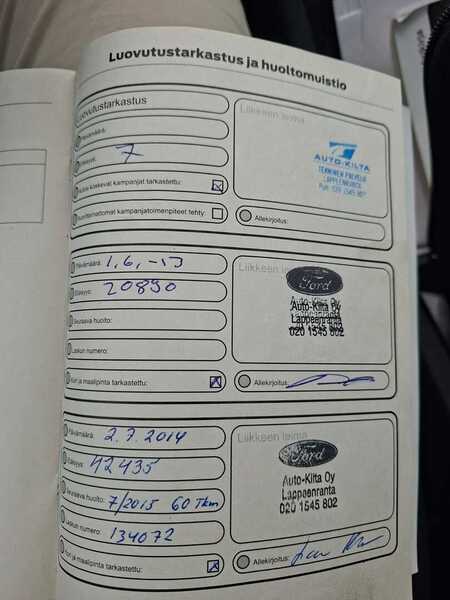 Luovutustarkastus ja huoltomuistio
Luovutustarkastus
Päivämäärä:
7
kampanjat tarkastettu:
kampanjatoimenpiteet tehty:
Liikkeen leima
AUTO-KILTA
TEKNINEN PALVELU
LAPPEENRANTA
Allekirjoitus:
Päivämäärä: 1,6,-13
20890
Seuraava huolto:
Laskun numero:
Kori ja maalipinta tarkastettu:
Liikkeen
Ford
Auto-Kilta Oy
Lappeenranta
020 1545 802
Allekirjoitus:
Päivämäärä: 2.7.2014
42435
Seuraava huolto: 7/2015 60 Tkm
Laskun numero: 134072
Kori ja maalipinta tarkastettu:
Liikkeen leima
Ford
Auto-Kilta Oy
Lappeenranta
020 1545 802
Allekirjoitus: